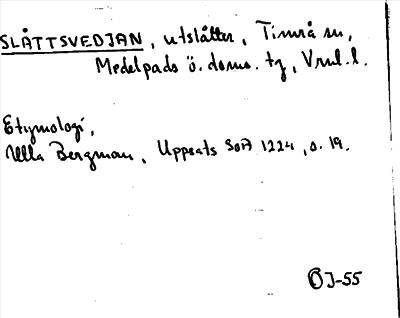 SLÅTTSVEDJAN, utslåtter, Timrå sn,
Medelpads ö. doms. tg, Vrnl. l.
Etymologi,
Ulla Bergman, Uppsats SOA 1224, s. 19.
ÖJ-55